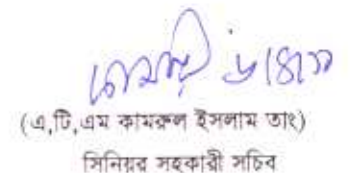 (এ,টি,এম কামরুল ইসলাম তাং)
সিনিয়র সহকারী সচিব